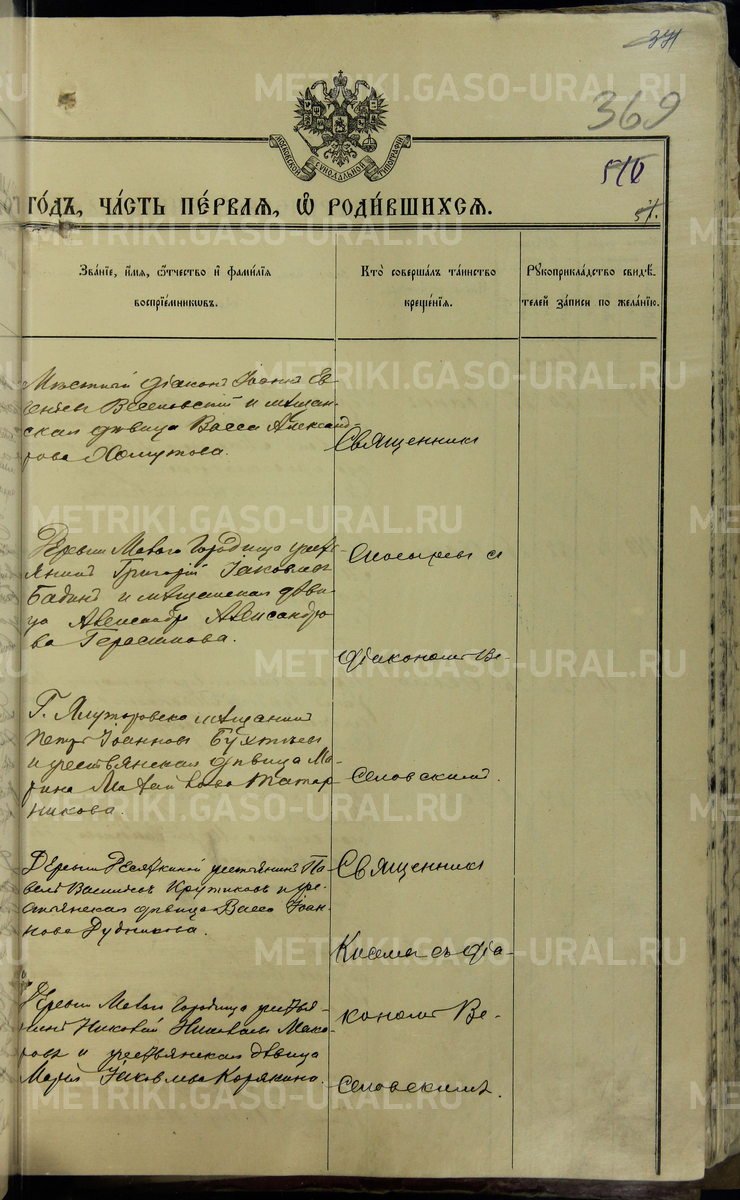 371
369
МОСКОВСКОЙ СѴНОДАЛЬНОЙ ТИПОГРАФІИ
51
ГО́ДЪ, ЧА́СТЬ ПЕ́РВАЯ, Ѽ РОДИ́ВШИХСЯ.
51.
Зва́нїе, и́мя, ѻ́тчество и фами́лїя
воспрїе́мниковъ.
Кто̀ соверша́лъ та́инство
креще́нїя.
Рꙋкоприкла́дство свидѣ́-
телей за́писи по жела́нїю.
Мѣстный діаконъ Іоаннъ Ев-
геніевъ Веселовскій и мѣщан-
ская дѣвица Васса Александ-
рова Хомутова.
Священникъ
Деревни Малаго Городища крест-
янинъ Григорій Іаковлевъ
Бабинъ и мѣщанская дѣви-
ца Александра Александро-
ва Герасимова.
съ
діакономъ Ве-
Г. Ялуторовска мѣщанинъ
Петръ Іоанновъ
и крестьянская дѣвица Ма-
рина Татар-
никова.
селовскимъ.
Деревни крестьянинъ Па-
велъ Васильевъ Кругликовъ и кре-
стьянская дѣвица Васса Іоан-
нова Дудникова.
Священникъ
съ діа-
Деревни Малаго Городища крестья-
нинъ Николай Николаевъ Мака-
ровъ и крестьянская дѣвица
Марія Іаковлева Корякина.
кономъ Ве-
селовскимъ.
METRIKI.GASO-URAL.RU